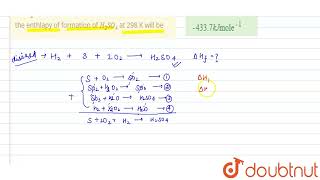 the enthlapy of formation of H₂SO₄ at 298 K will be
-433.7kJmole⁻¹
desired → H₂ + S + 2O₂ → H₂SO₄ ΔHf = ?
S + O₂ → SO₂ — ① ΔH₁
SO₂ + ½O₂ → SO₃ — ② ΔH
+ SO₃ + H₂O → H₂SO₄ — ③
H₂ + ½O₂ → H₂O — ④
S + 2O₂ + H₂ → H₂SO₄
doubtnut